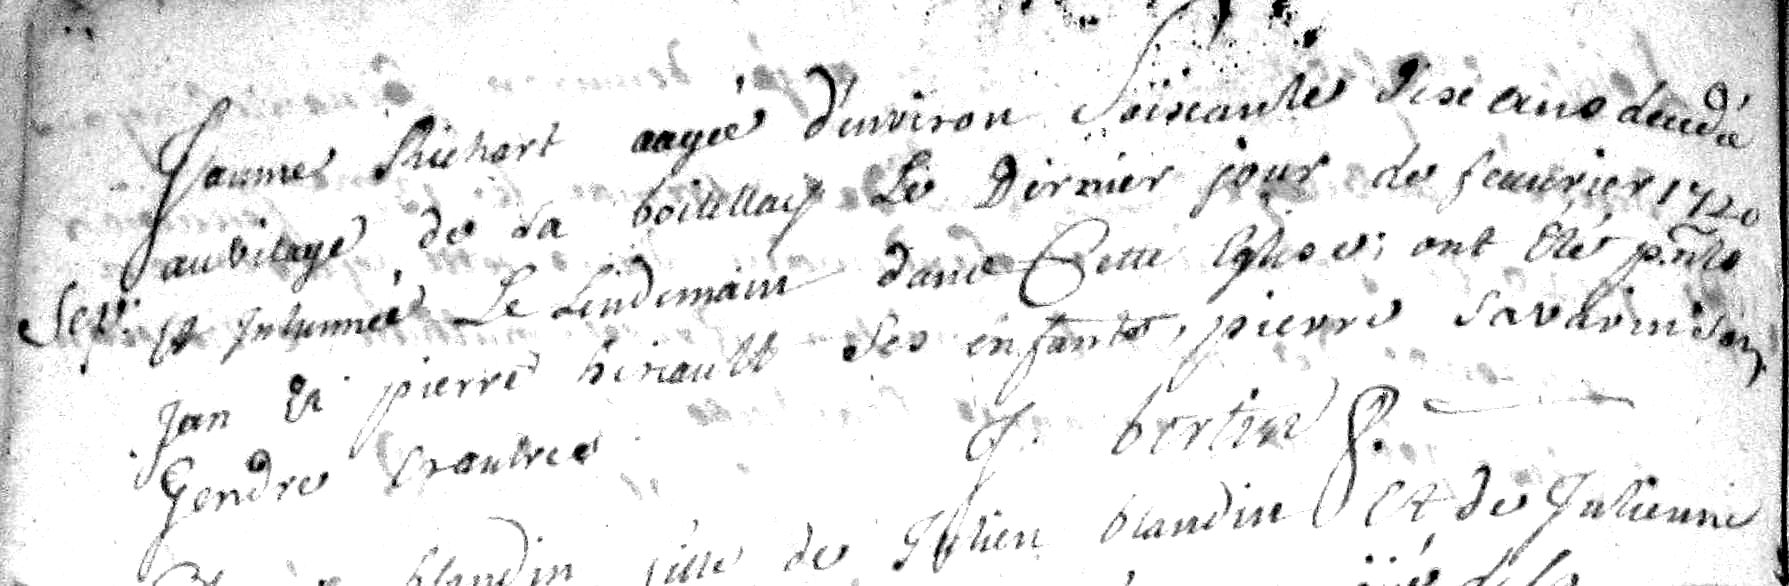 Jaumes Richart aagée d'environ Soixante Dixe ans decedé
au vilage de La boitellaÿ Le Dernier jour de feauvrier 1720
Sep.r et Inhumée Le Lendemain dans Cette Eglise; ont Eté p.nts
Jan Et pierre herault Ses enfants, pierre Savarin Son
Gendre
J. bertin
blandin fille de Julien blandin Et de Julienne